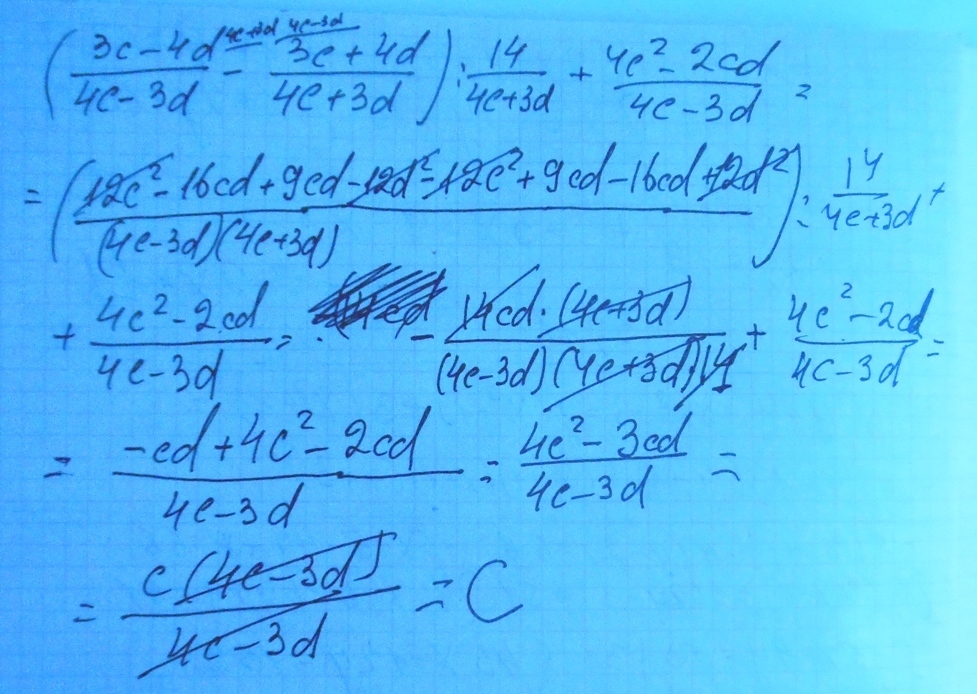 (3c-4d/4c-3d - 3c+4d/4c+3d) : 14/4c+3d + 4c²-2cd/4c-3d =
= (12c²-16cd+9cd-12d²-12c²+9cd-16cd+12d²/(4c-3d)(4c+3d)) : 14/4c+3d +
+ 4c²-2cd/4c-3d = - 14cd·(4c+3d)/(4c-3d)(4c+3d)14 + 4c²-2cd/4c-3d =
= -cd+4c²-2cd/4c-3d = 4c²-3cd/4c-3d =
= c(4c-3d)/4c-3d = C